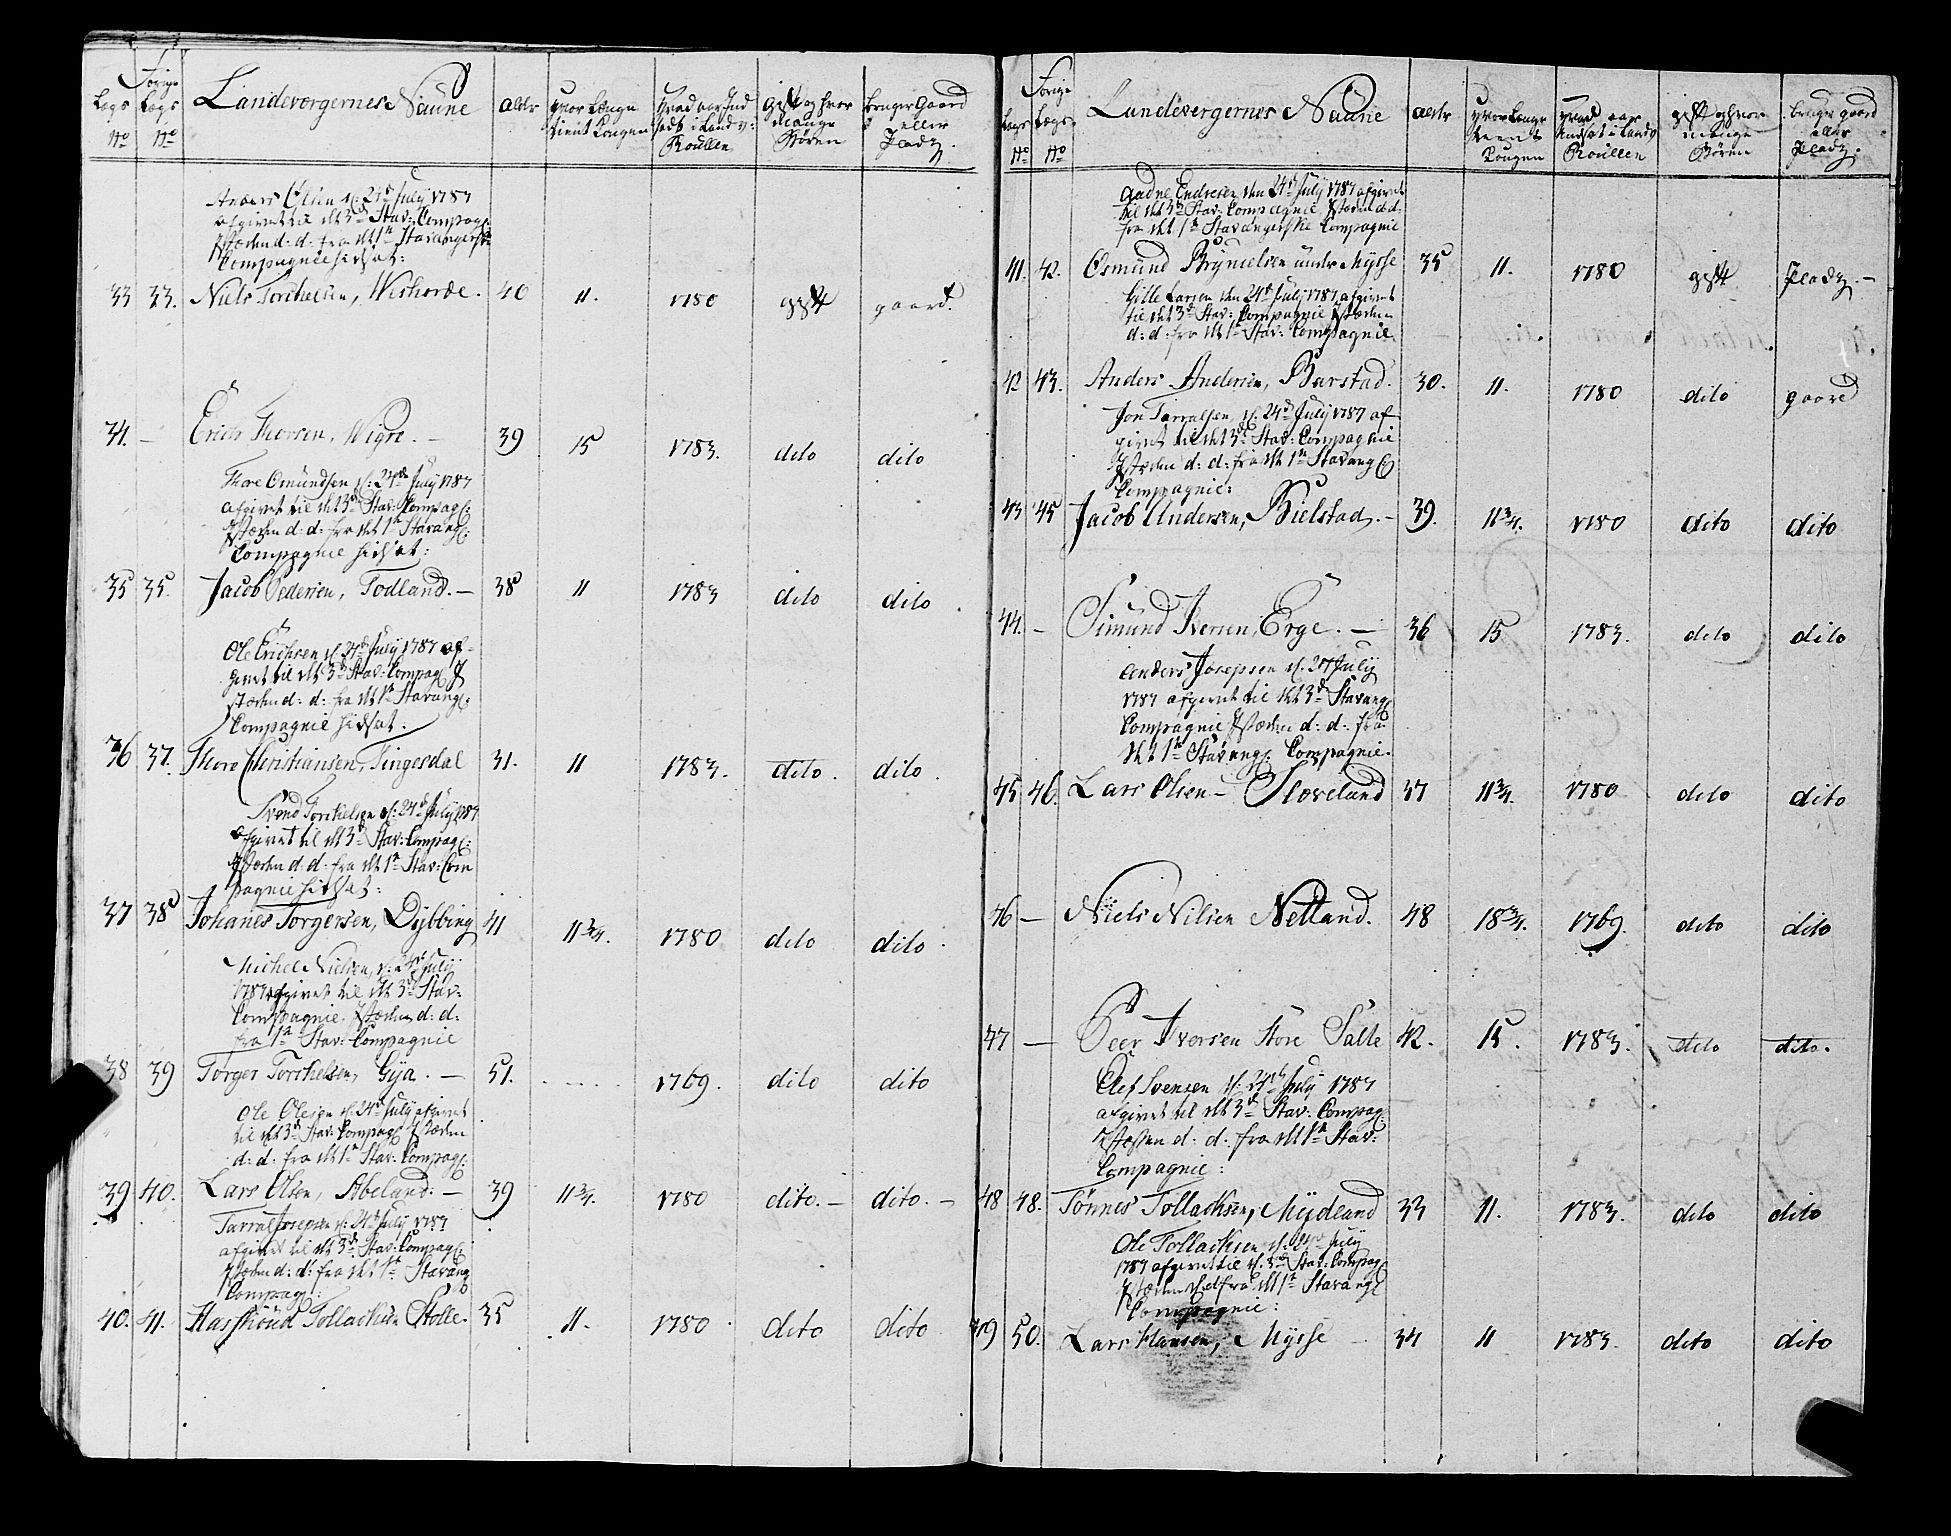 Lægs No | Forige Lægs No | Landeværgernes Naune | alder | hvor Længe tient Kongen | hvad aar Ind sadt i Landv: Roullen | gift og hvor Mange Børen | bruger Gaard eller Pladz.
Anders Olsen d: 24de July 1787
afgivet til det 3de Stav: Compag:
Jstæden d: d: fra det 1te Stavangerske
Compagnie hidsat:
33 33. Niels Torchelsen, 40 11. 1780 gift gaard.
34. — Erich Thorsen, Wigre. — 39 15 1783. dito dito
Thore Omündsen d: 24de July 1787
afgivet til det 3de Stav: Compag:
Jstæden d: d: fra det 1te Stavang:
Compagnie hidsat:
35 35. Jacob Pedersen, Todland. — 38 11 1783 dito dito.
Ole Erichsen d: 24de July 1787 af-
givet til det 3de Stav: Compag: J
stæden d: d: fra det 1te Stavang:
Compagnie hidsat:
36 37. Thore Christiansen, Tingesdal 31. 11 1783. dito. dito.
Svend Torchelsen d: 24de July 1787
afgivet til det 3de Stav: Compag:
Jstæden d: d: fra det 1te Stav: Com
pagnie hidsat:
37 38 Johanes Torgersen, Dybbing 41 11 3/4. 1780 dito dito.
Michel Nielsen, d: 24de July
1787 afgivet til det 3de Stav:
Compagnie. Jstæden d: d:
fra 1te Stav: Compagnie
38 39 Torger Torchelsen, Gya. — 51. 1769. dito dito
Ole Olesen d: 24de July afgivet
til det 3de Stav: Compag: Jstæden
d: d: fra det 1te Stav: Compag:
39 40. Lars Olsen, Abeland: — 39 11 3/4. 1780 dito. — dito. —
Tarral Josepsen d: 24de July 1787
afgivet til det 3de Stav: Compag:
Jstæden d: d: fra det 1te Stavang
Compag:
40. 41. Tollachsen Stolle. 35 11. 1780 dito dito
Lægs No | Forige Lægs No | Landeværgernes Naune | alder | hvor Længe tient Kongen | hvad aar Indsat i Landv Roullen | gift og hvor mange Børen | bruger gaard eller Pladz.
Aadne Endresen den 24de July 1787 afgivet
til det 3de Stav: Compagnie Jstæden d: d:
fra det 1te Stavangerske Compagnie
41. 42. Osmund Brynielsen under Mysse 35 11. 1780 gift Pladz. —
Gille Larsen den 24de July 1787 afgivet
til det 3de Stav: Compagnie Jstæden
d: d: fra det 1te Stav: Compagnie
42 43. Anders Andersen, Barstad. 30. 11. 1780 dito gaard
Jon Tarralsen, d: 24de July 1787 af
givet til det 3de Stav: Compagnie
Jstæden d: d: fra det 1te Stavang:
Compagnie:
43 45 Jacob Andersen, Bielstad. — 39. 11 3/4. 1780 dito dito
44. — Simund Iversen, Erge. — 36 15 1783. dito dito
Anders Josepsen d. 24 July
1787 afgivet til det 3de Stavang:
Compagnie Jstæden d: d: fra
det 1te Stavang: Compagnie.
45 46. Lars Olsen — Sloveland 37 11 3/4. 1780 dito dito
46 — Niels Nilsen Netland. 48 18 3/4. 1769. dito dito
47 — Peer Iversen Store Salte 42. 15. 1783. dito dito.
Olef Svensen d: 24de July 1787
afgivet til det 3de Stav: Compag:
Jstæden d: d: fra det 1te Stav:
Compagnie:
48 48. Tønnes Tollachsen, Mydland 33 11. 1783. dito dito
Ole Tollachsen d: 24de July
1787 afgivet til d: 3de Stav: Compag
Jstæden d: d fra det 1te Stavang:
Compagnie:
49 50. Lars Hansen, Mysse — 34 11 1783. dito dito